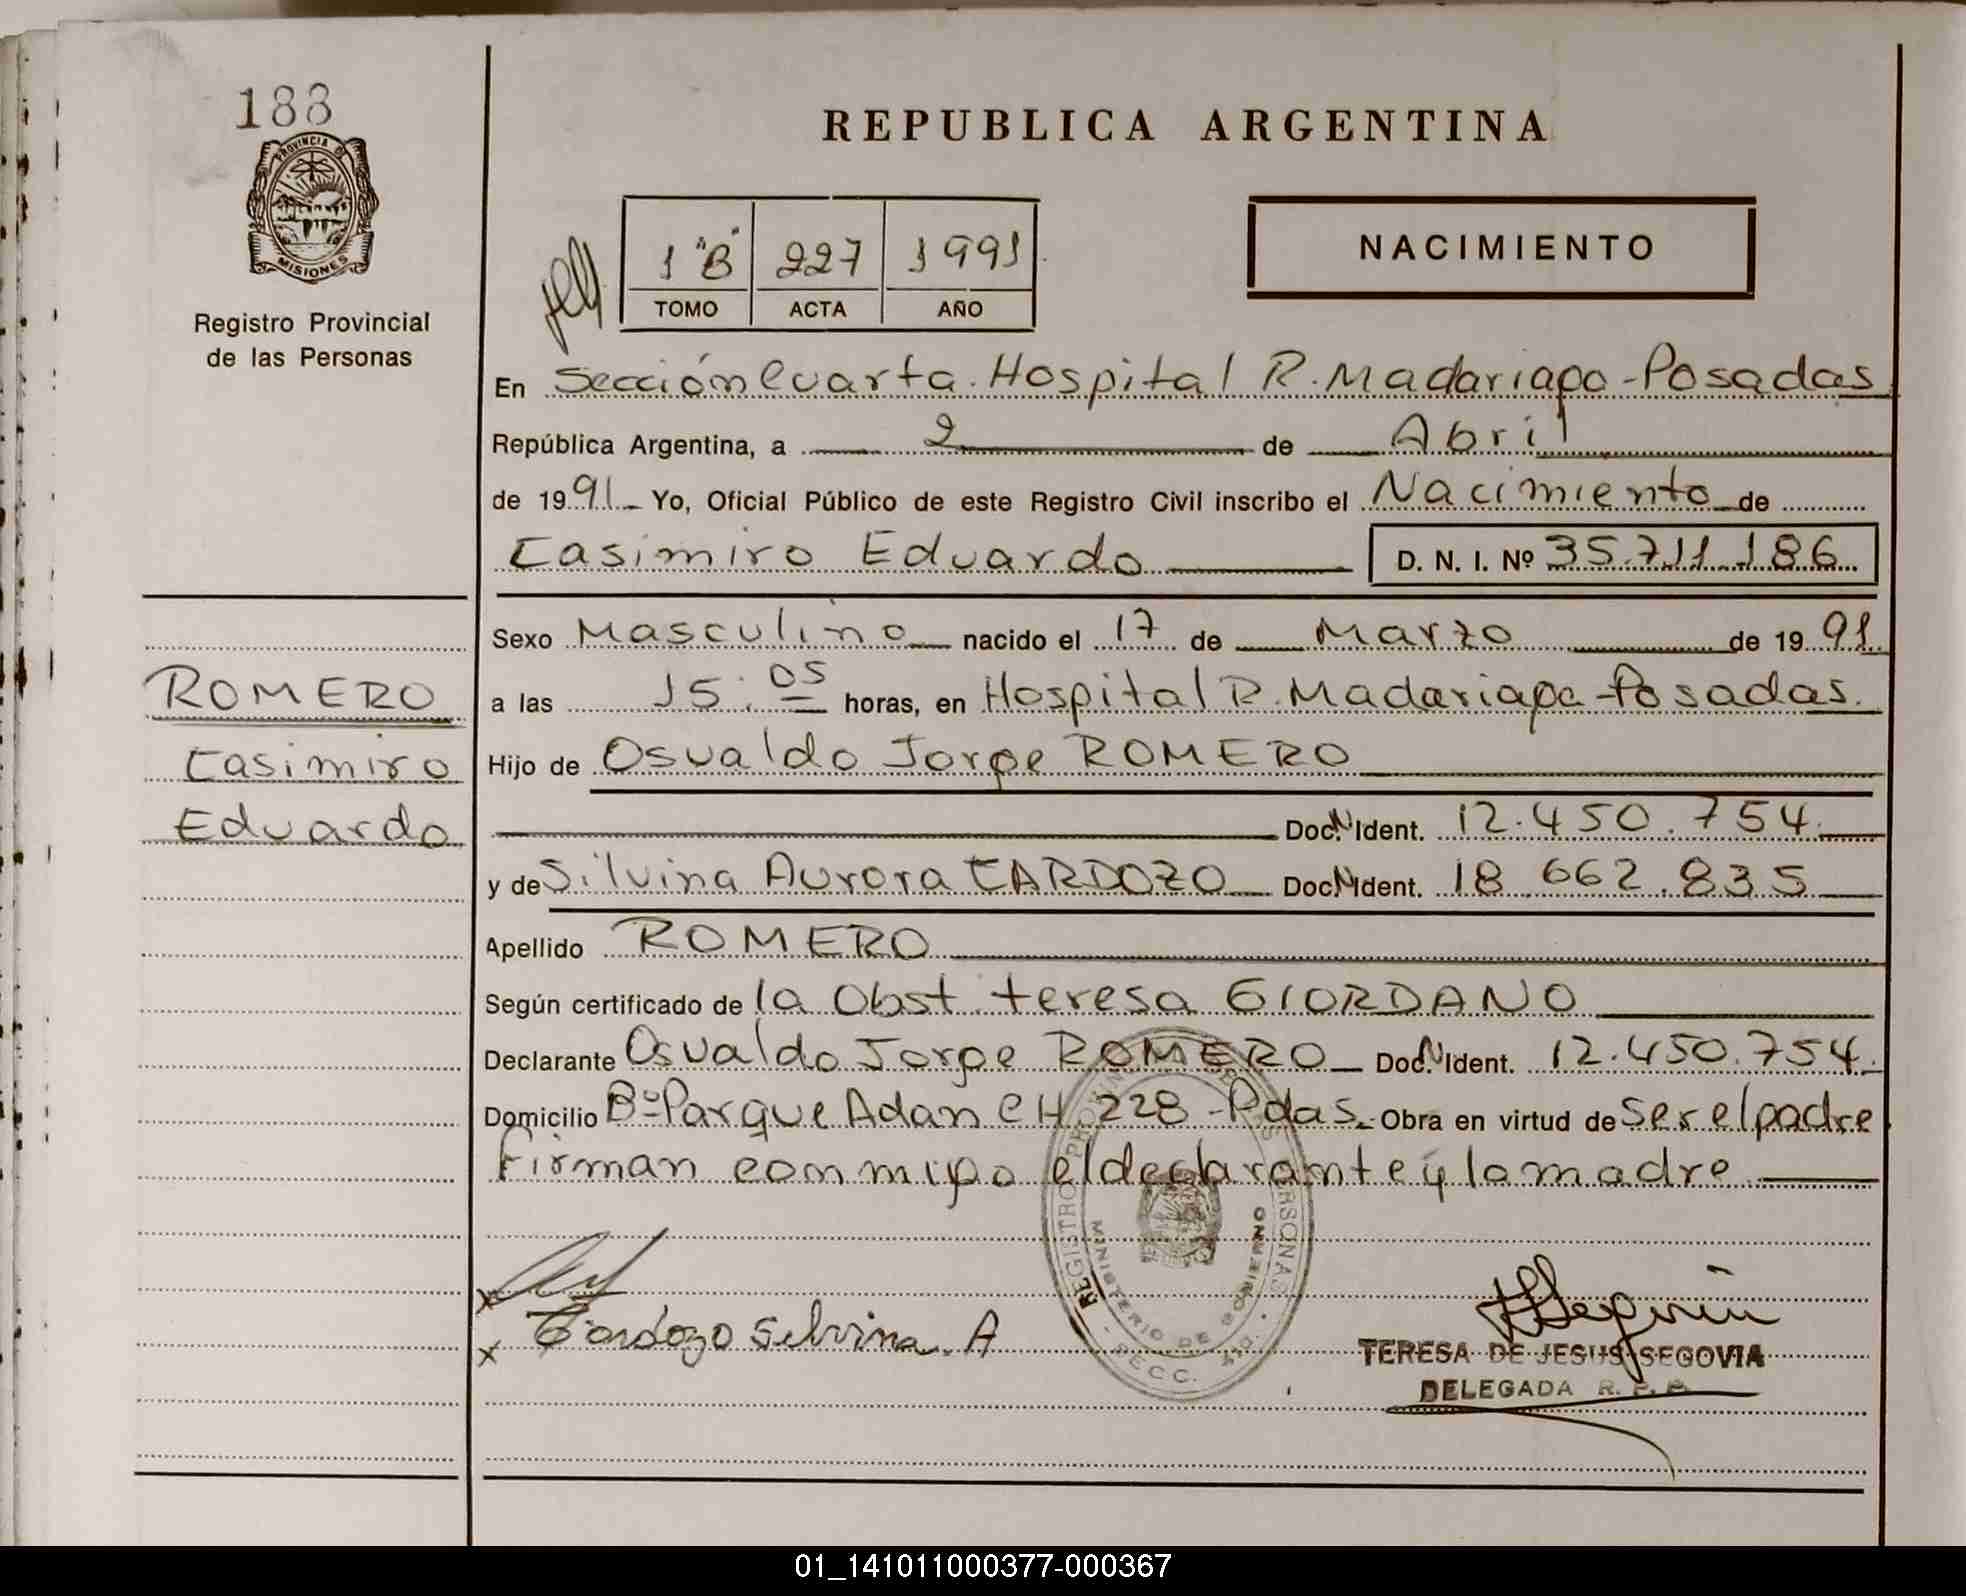 188
PROVINCIA DE
MISIONES
Registro Provincial
de las Personas
REPUBLICA ARGENTINA
1 "B" 227 1991
TOMO ACTA AÑO
NACIMIENTO
En Sección Cuarta. Hospital R. Madariaga - Posadas
República Argentina, a 2 de Abril
de 1991 Yo, Oficial Público de este Registro Civil inscribo el Nacimiento de
Casimiro Eduardo D. N. I. Nº 35.711.186
Sexo Masculino nacido el 17 de Marzo de 1991
a las 15:05 horas, en Hospital R. Madariaga - Posadas.
Hijo de Osvaldo Jorge ROMERO
Doc. N Ident. 12.450.754
y de Silvina Aurora CARDOZO Doc. N Ident. 18.662.835
Apellido ROMERO
Según certificado de la Obst. teresa GIORDANO
Declarante Osvaldo Jorge ROMERO Doc. N Ident. 12.450.754
Domicilio Bº Parque Adan CH 228 - Pdas. Obra en virtud de ser el padre
Firman conmigo el declarante y la madre
ROMERO
Casimiro
Eduardo
x
x Cardozo Silvina. A
REGISTRO PROVINCIAL DE LAS PERSONAS
MINISTERIO DE GOBIERNO
SECC. 4ta.
TERESA DE JESUS SEGOVIA
DELEGADA R. P. P.
01_141011000377-000367